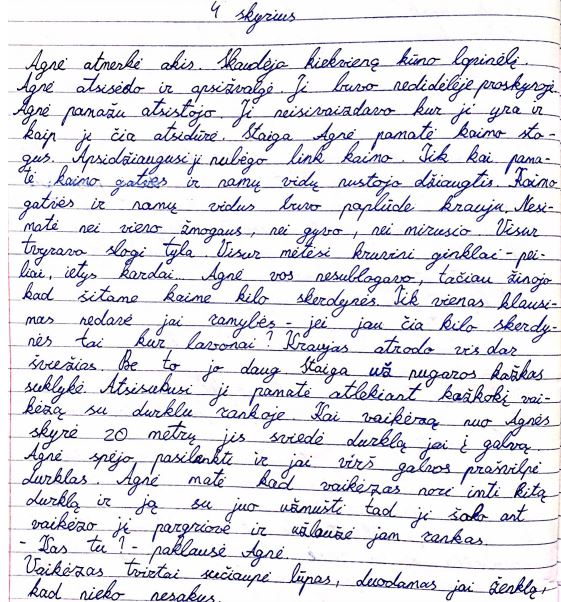 4 skyrius
Agnė atmerkė akis. Skaudėjo kiekvieną kūno lopinėlį.
Agnė atsisėdo ir apsižvalgė. Ji buvo nedidelėje proskynoje.
Agnė pamažu atsistojo. Ji neisivaizdavo kur ji yra ir
kaip ji čia atsidūrė. Staiga Agnė pamatė kaimo sto-
gus. Apsidžiaugusi ji nubėgo link kaimo. Tik kai pama-
tė kaimo gatves ir namų vidų nustojo džiaugtis. Kaimo
gatvės ir namų vidus buvo paplūdę krauju. Nesi-
matė nei vieno žmogaus, nei gyvo, nei mirusio Visur
tvyravo slogi tyla. Visur mėtėsi kruvini ginklai - pei-
liai, ietys kardai. Agnė vos nesublogavo, tačiau žinojo
kad šitame kaime kilo skerdynės. Tik vienas klausi-
mas nedavė jai ramybės - jei jau čia kilo skerdy-
nės tai kur lavonai? Kraujas atrodo vis dar
šviežias. Be to jo daug Staiga už nugaros kažkas
suklykė Atsisukusi ji pamatė atlekiant kažkokį vai-
kėzą su durklu rankoje. Kai vaikėzą nuo Agnės
skyrė 20 metrų jis sviedė durklą jai į galvą.
Agnė spėjo pasilenkti ir jai virš galvos prašvilpė
durklas. Agnė matė kad vaikėzas nori imti kitą
durklą ir ją su juo užmušti tad ji šoko ant
vaikėzo jį pargriovė ir užlaužė jam rankas.
- Kas tu? - paklausė Agnė.
Vaikėzas tvirtai sučiaupė lūpas, duodamas jai ženklą,
kad nieko nesakys.